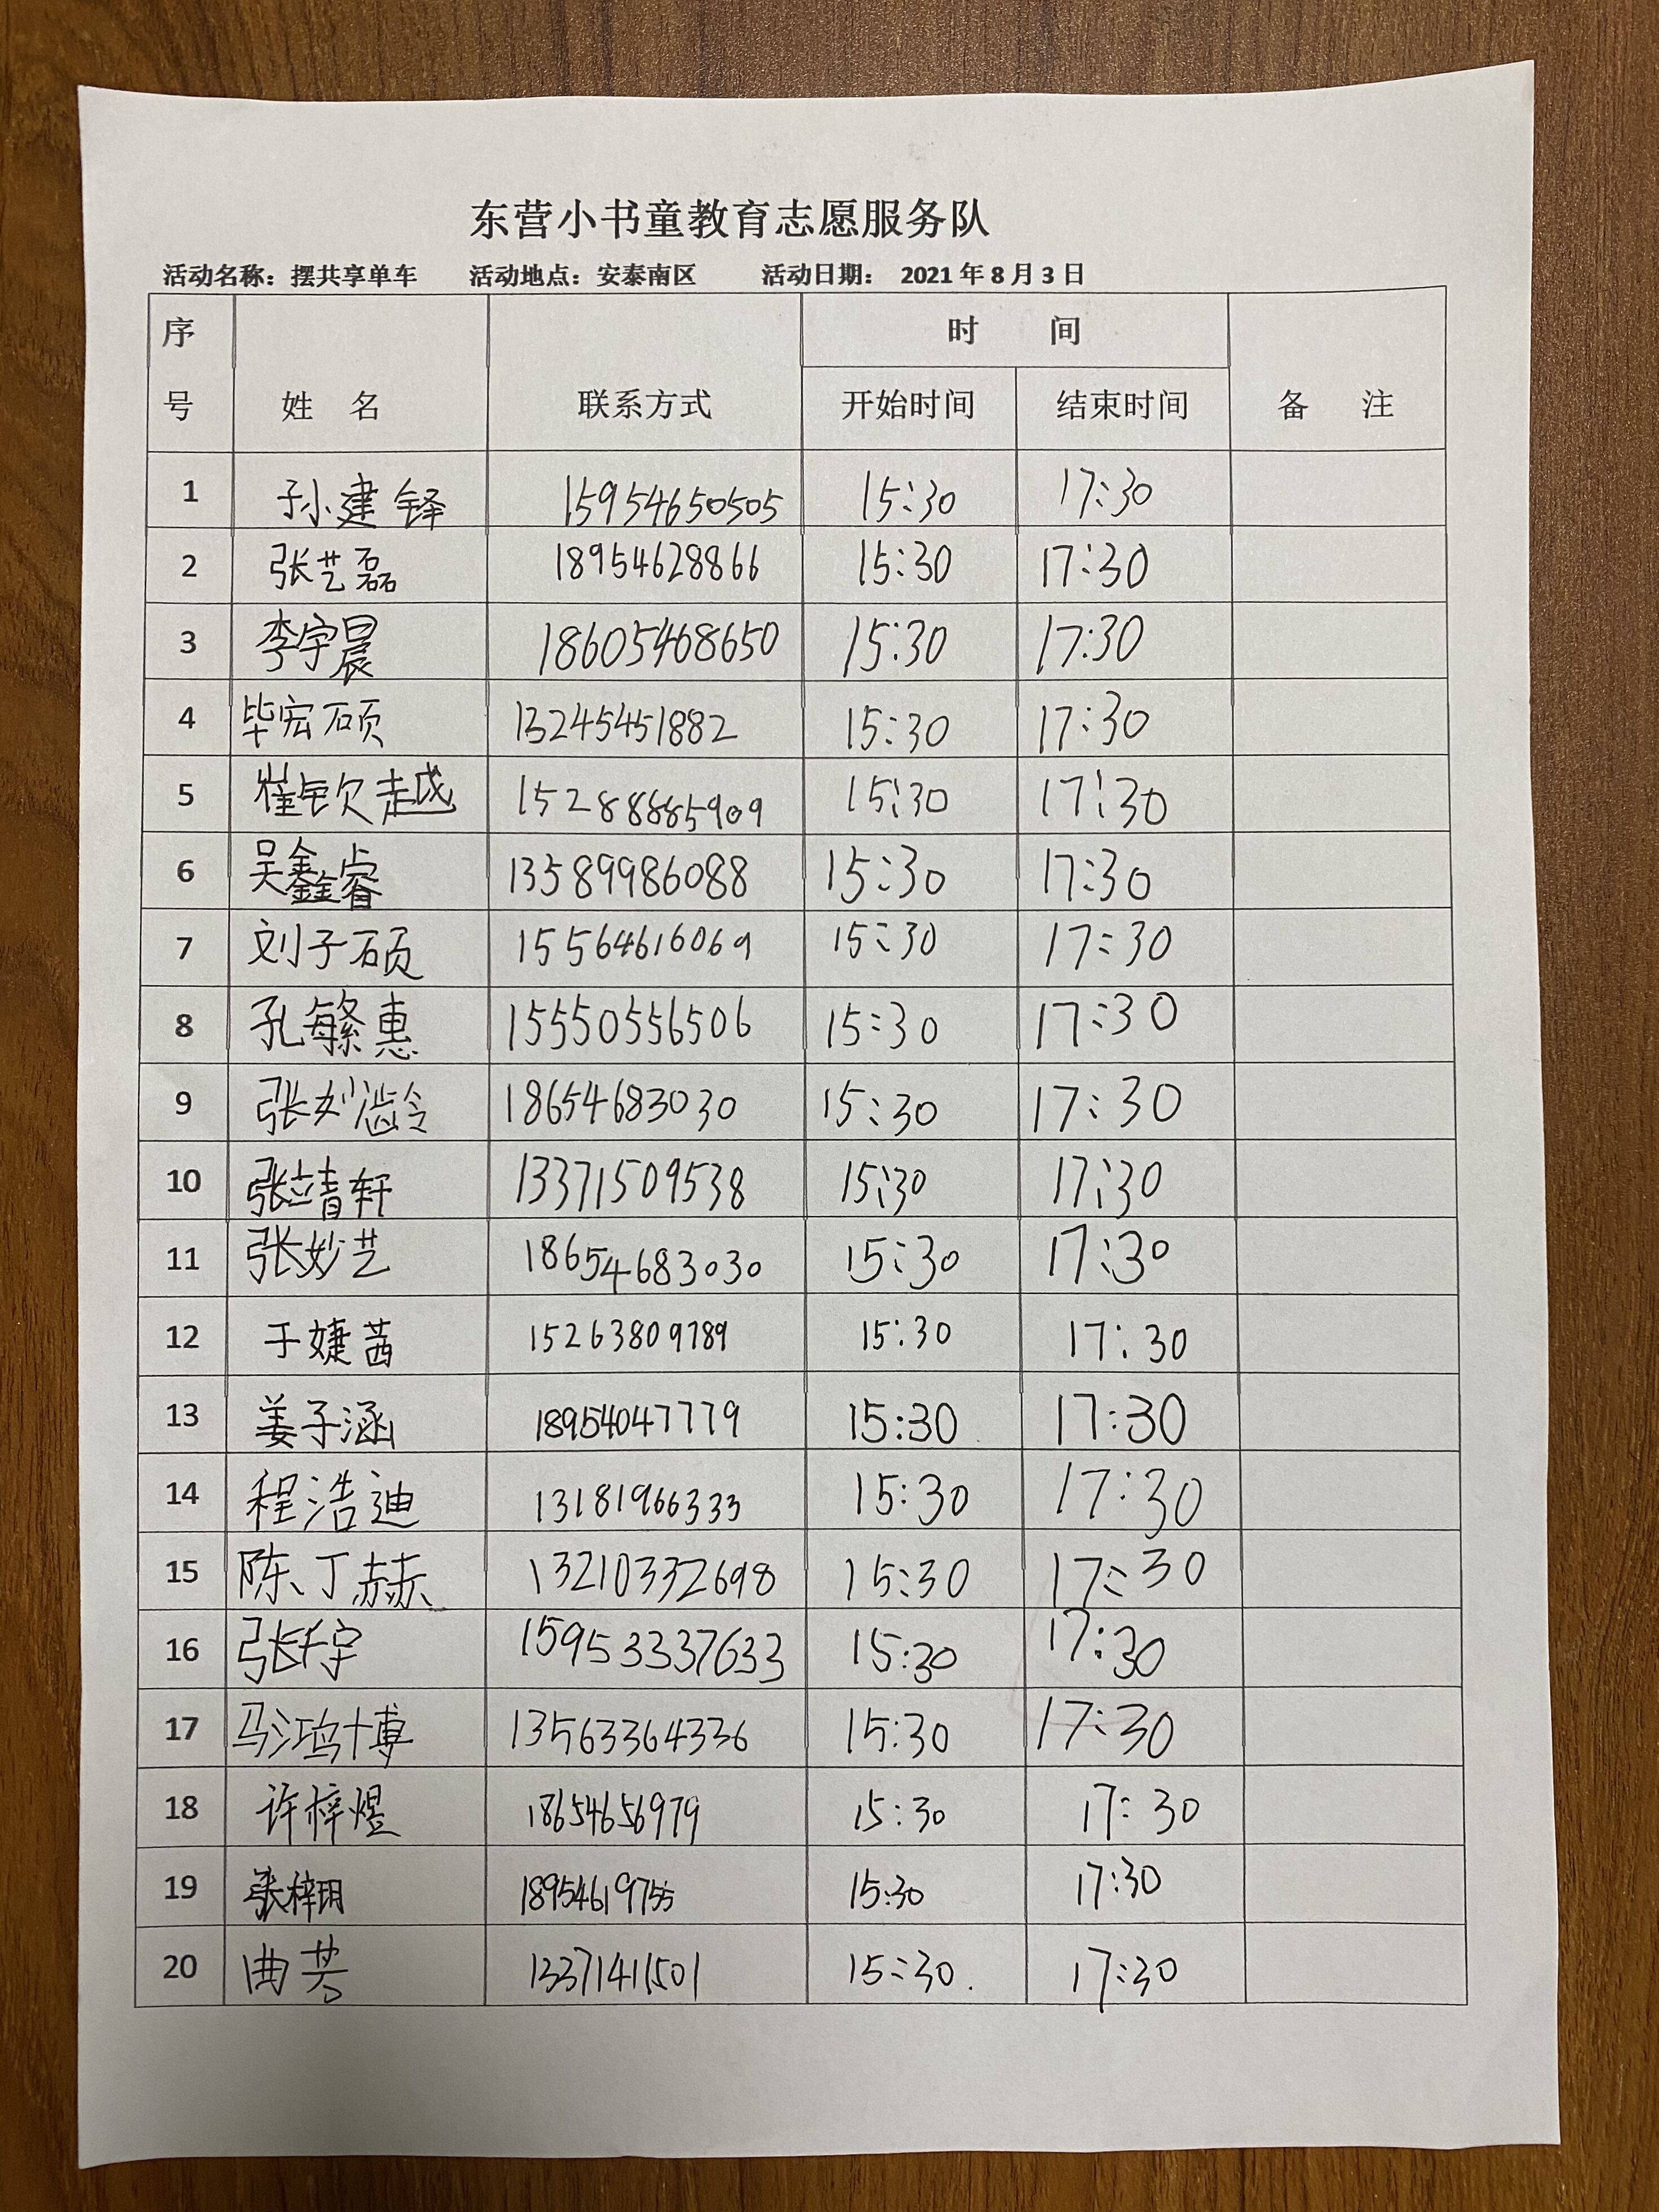 东营小书童教育志愿服务队
活动名称：摆共享单车 活动地点：安泰南区 活动日期： 2021 年 8 月 3 日
序号 姓 名 联系方式 时 间 备 注
开始时间 结束时间
1 孙建铎 15954650505 15:30 17:30
2 张艺磊 18954628866 15:30 17:30
3 李宇晨 18605468650 15:30 17:30
4 毕宏硕 13245451882 15:30 17:30
5 崔钦越 15288885909 15:30 17:30
6 吴鑫睿 13589986088 15:30 17:30
7 刘子硕 15564616069 15:30 17:30
8 孔繁惠 15550556506 15:30 17:30
9 18654683030 15:30 17:30
10 张靖轩 13371509538 15:30 17:30
11 张妙艺 18654683030 15:30 17:30
12 于婕茜 15263809789 15:30 17:30
13 姜子涵 18954047779 15:30 17:30
14 程浩迪 13181966333 15:30 17:30
15 陈丁赫 13210332698 15:30 17:30
16 15953337633 15:30 17:30
17 马鸿博 13563364336 15:30 17:30
18 许梓煜 18654656979 15:30 17:30
19 张梓玥 18954619755 15:30 17:30
20 13371411501 15:30 17:30